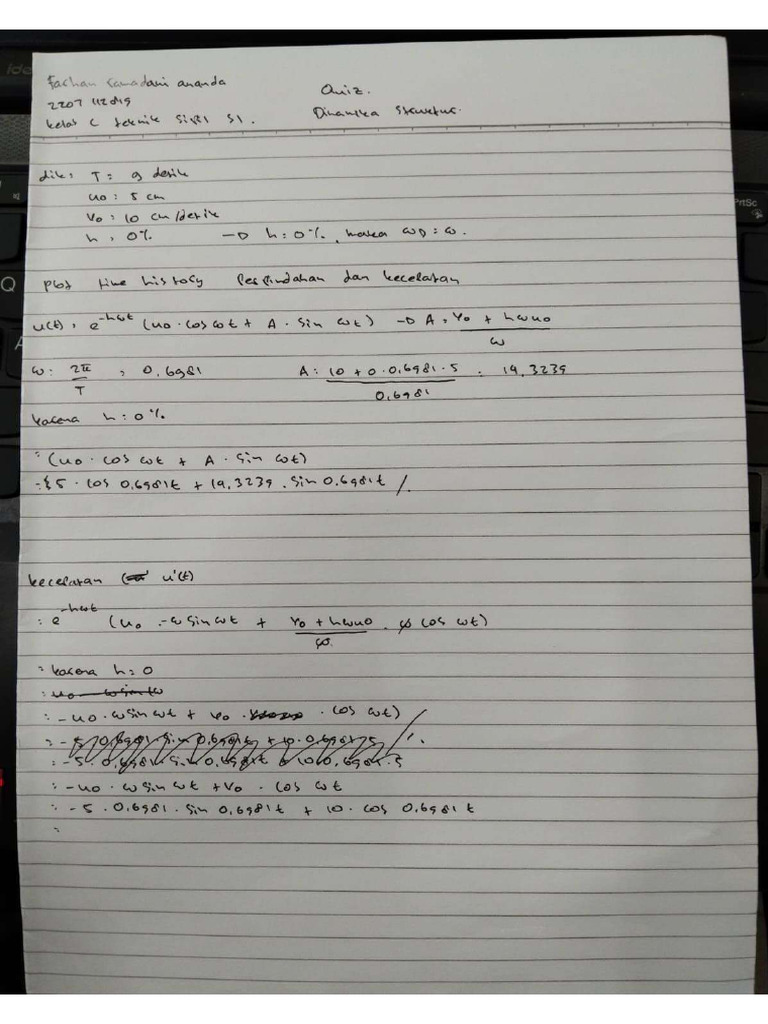 Farhan Ramadani ananda
Quiz.
2207 112019
Dinamika Struktur.
kelas C teknik Sipil S1.
dik: T = 9 detik
u0 : 5 cm
V0 : 10 cm/detik
h : 0% → h : 0%, maka ωD = ω.
Plot time history Perpindahan dan kecepatan
u(t) : e^-hωt (u0 . cos ωt + A . sin ωt) → A : V0 + hωu0 / ω
ω : 2π / T = 0,6981 A : 10 + 0 . 0,6981 . 5 / 0,6981 = 14,3239
karena h : 0%
: (u0 . cos ωt + A . sin ωt)
: 5 . cos 0,6981t + 14,3239 . sin 0,6981t //.
kecepatan u'(t)
: e^-hωt (u0 . -ω sin ωt + V0 + hωu0 / ω . ω cos ωt)
: karena h : 0
: -u0 . ω sin ωt + V0 . cos ωt)
: -u0 . ω sin ωt + V0 . cos ωt
: -5 . 0,6981 . sin 0,6981t + 10 . cos 0,6981 t
: